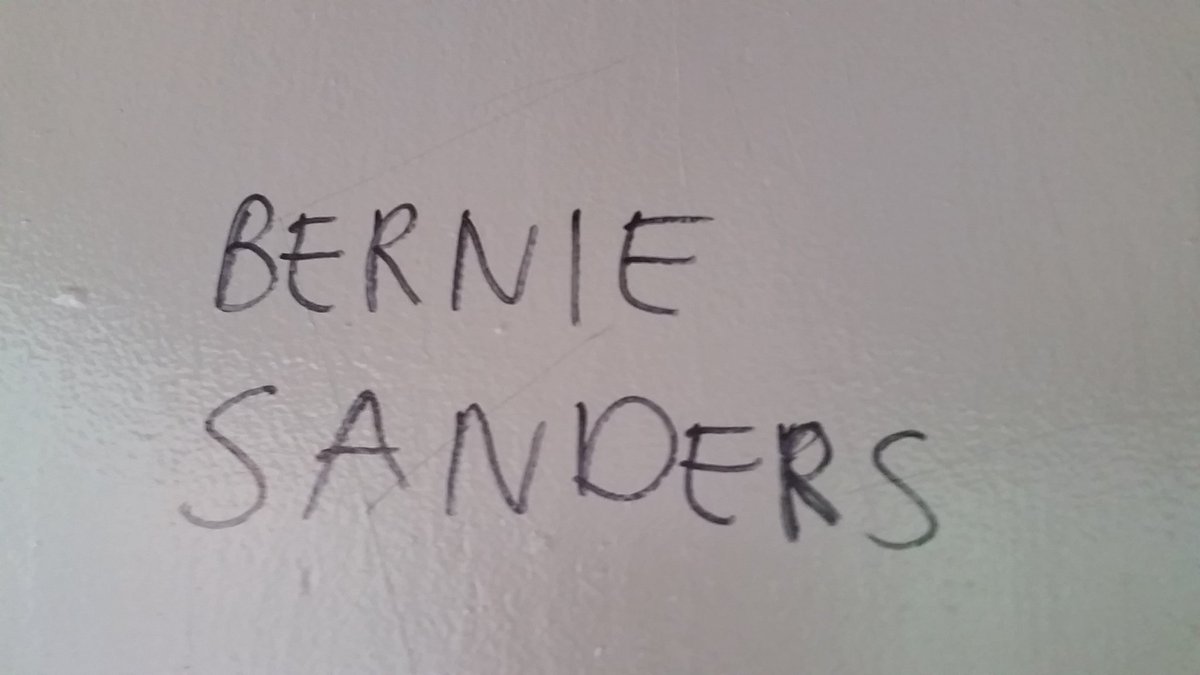 BERNIE
SANDERS